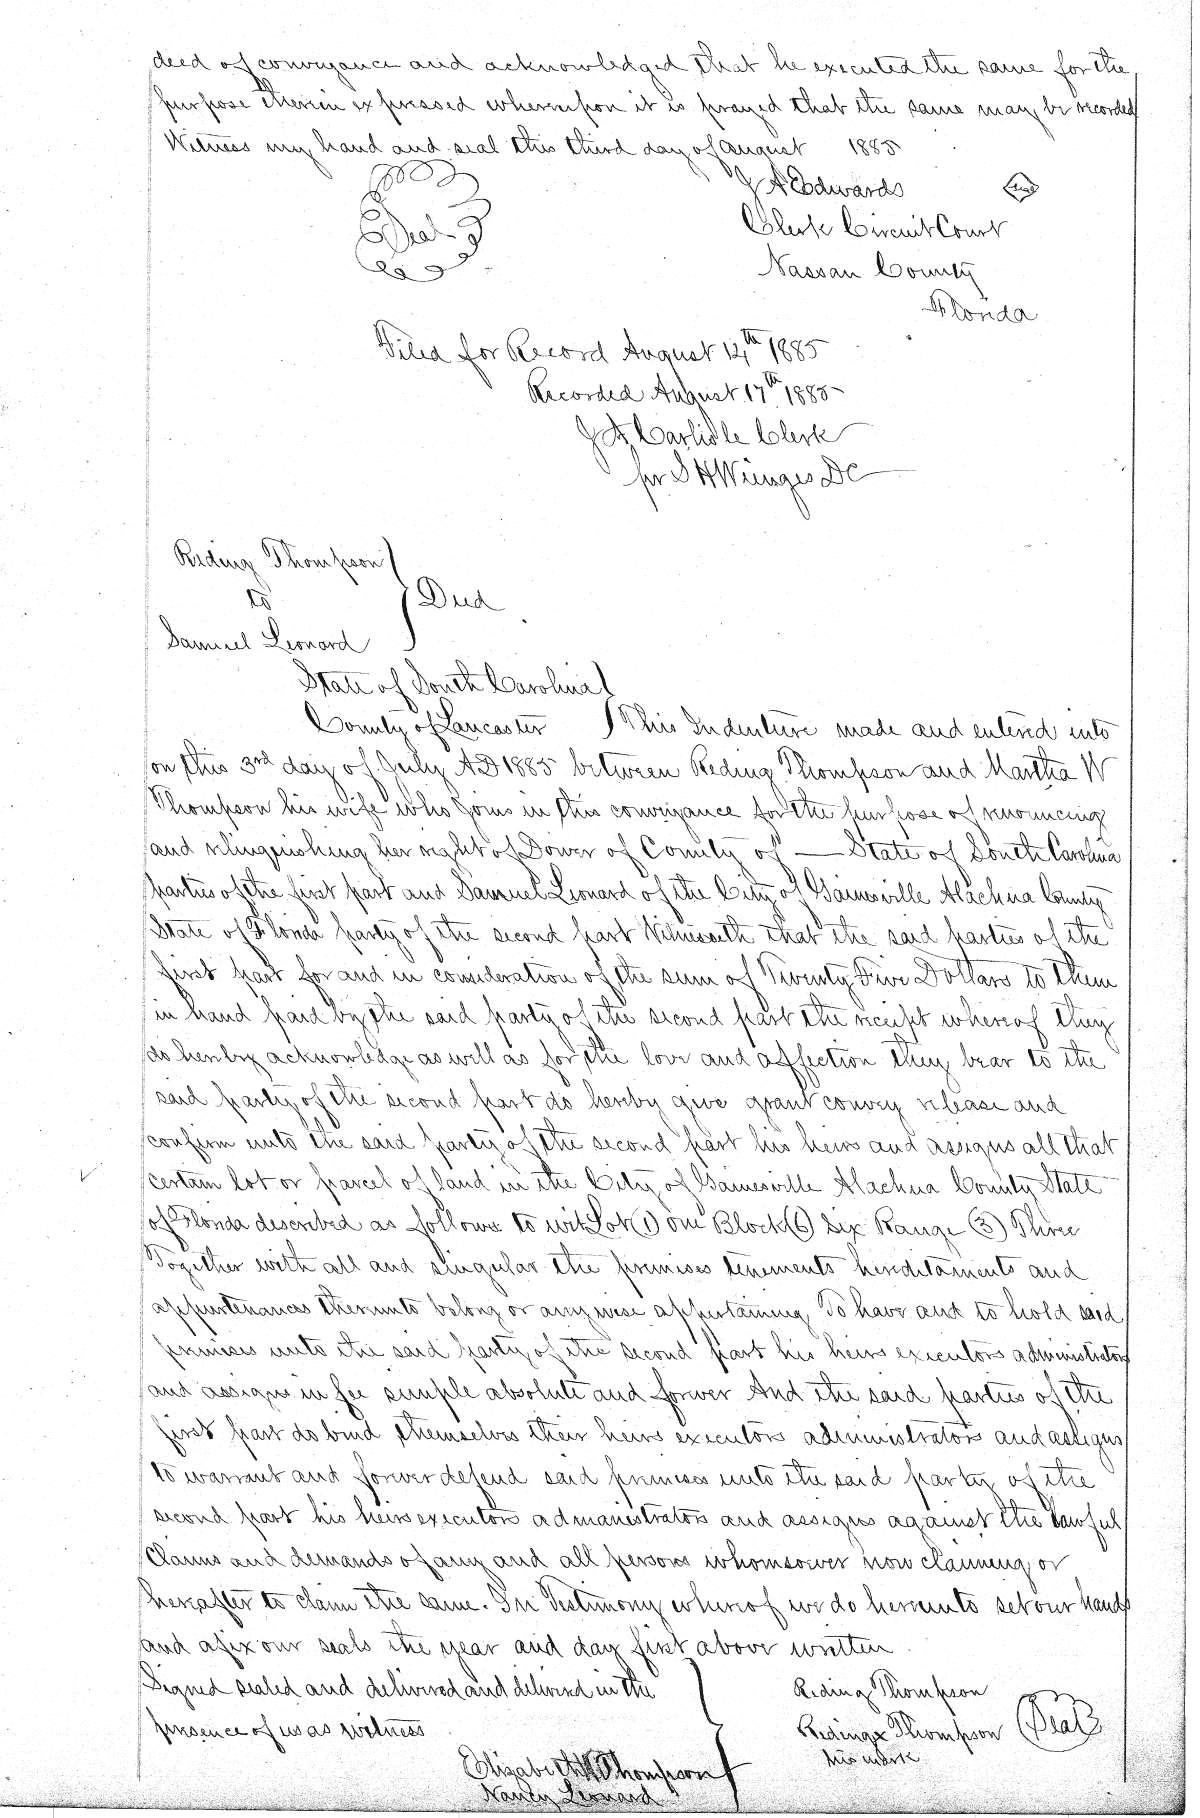 deed of conveyance and acknowledged that he executed the same for the
purpose therein expressed whereupon it is prayed that the same may be recorded
Witness my hand and seal this third day of August 1885
J A Edwards Seal
Clerk Circuit Court
Seal
Nassau County
Florida
Filed for Record August 14th 1885
Recorded August 17th 1885
J A Carlisle Clerk
per S H Wienges DC
Reding Thompson
to } Deed
Samuel Leonard
State of South Carolina }
County of Lancaster } This Indenture made and entered into
on this 3rd day of July AD 1885 between Reding Thompson and Martha W
Thompson his wife who joins in this conveyance for the purpose of renouncing
and relinquishing her right of Dower of County of — State of South Carolina
parties of the first part and Samuel Leonard of the City of Gainesville Alachua County
State of Florida party of the second part Witnesseth that the said parties of the
first part for and in consideration of the sum of Twenty Five Dollars to them
in hand paid by the said party of the second part the receipt whereof they
do hereby acknowledge as well as for the love and affection they bear to the
said party of the second part do hereby give grant convey release and
confirm unto the said party of the second part his heirs and assigns all that
certain lot or parcel of land in the City of Gainesville Alachua County State
of Florida described as follows to wit Lot (1) one Block (6) Six Range (3) Three
Together with all and singular the premises tenements hereditaments and
appurtenances thereunto belong or anywise appertaining, To have and to hold said
premises unto the said party of the second part his heirs executors administrators
and assigns in fee simple absolute and forever And the said parties of the
first part do bind themselves their heirs executors administrators and assigns
to warrant and forever defend said premises unto the said party of the
second part his heirs executors administrators and assigns against the lawful
Claims and demands of any and all persons whomsoever now claiming or
hereafter to claim the same. In Testimony whereof we do hereunto set our hands
and afix our seals the year and day first above written
Signed sealed and delivered and delivered in the } Reding Thompson
presence of us as witness Reding x Thompson Seal
his mark
Elizabeth Thompson
Nancy Leonard